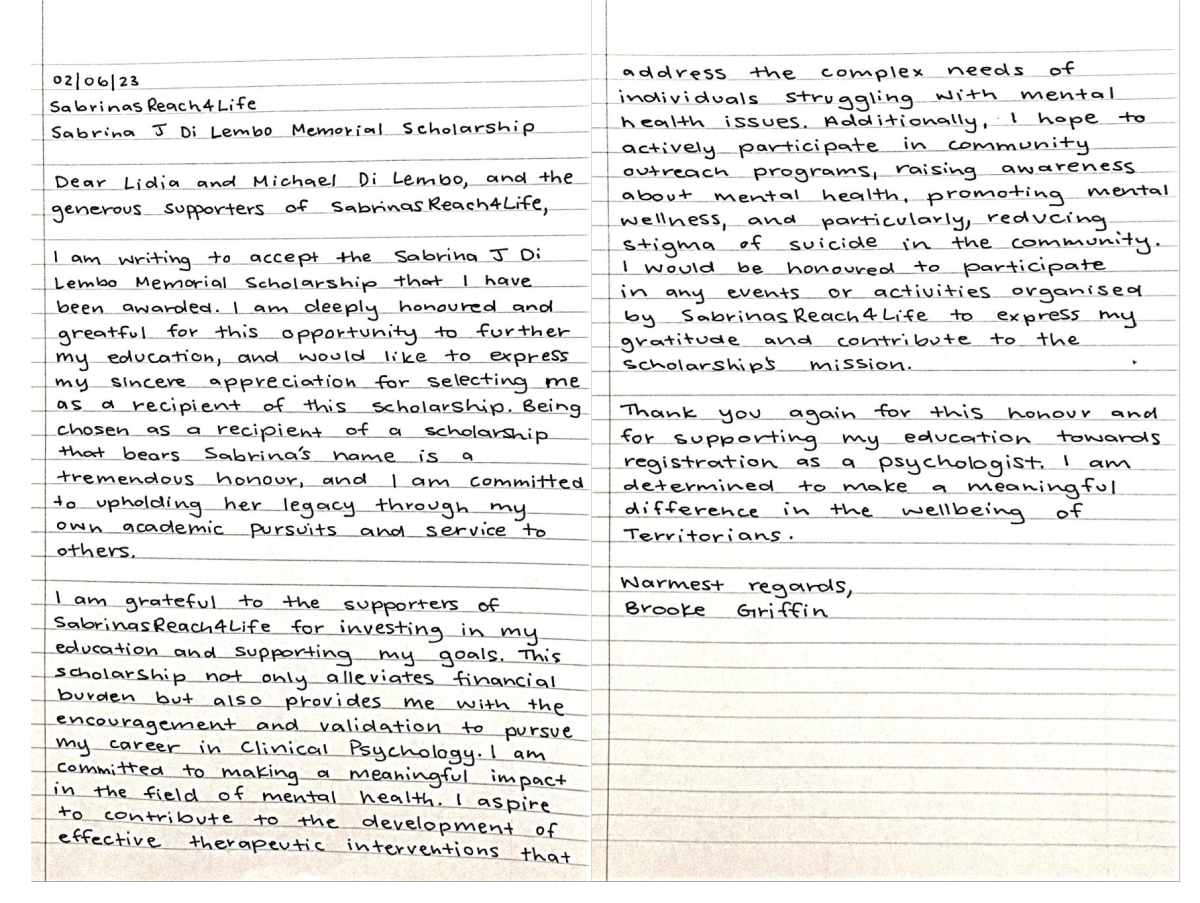 02/06/23
SabrinasReach4Life
Sabrina J Di Lembo Memorial Scholarship
Dear Lidia and Michael Di Lembo, and the
generous supporters of SabrinasReach4Life,
I am writing to accept the Sabrina J Di
Lembo Memorial Scholarship that I have
been awarded. I am deeply honoured and
greatful for this opportunity to further
my education, and would like to express
my sincere appreciation for selecting me
as a recipient of this scholarship. Being
chosen as a recipient of a scholarship
that bears Sabrina's name is a
tremendous honour, and I am committed
to upholding her legacy through my
own academic pursuits and service to
others.
I am grateful to the supporters of
SabrinasReach4Life for investing in my
education and supporting my goals. This
scholarship not only alleviates financial
burden but also provides me with the
encouragement and validation to pursue
my career in Clinical Psychology. I am
committed to making a meaningful impact
in the field of mental health. I aspire
to contribute to the development of
effective therapeutic interventions that
address the complex needs of
individuals struggling with mental
health issues. Additionally, I hope to
actively participate in community
outreach programs, raising awareness
about mental health, promoting mental
wellness, and particularly, reducing
stigma of suicide in the community.
I would be honoured to participate
in any events or activities organised
by SabrinasReach4Life to express my
gratitude and contribute to the
scholarship's mission.
Thank you again for this honour and
for supporting my education towards
registration as a psychologist. I am
determined to make a meaningful
difference in the wellbeing of
Territorians.
Warmest regards,
Brooke Griffin